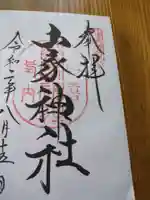 奉拝
土家神社
令和二年八月十五日